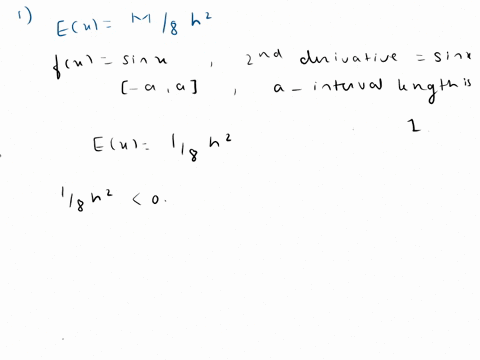 1) E(x) = M/8 h²
f(x) = sin x , 2nd derivative = sin x
[-a, a] , a - interval length is
1
E(x) = 1/8 h²
1/8 h² < 0.